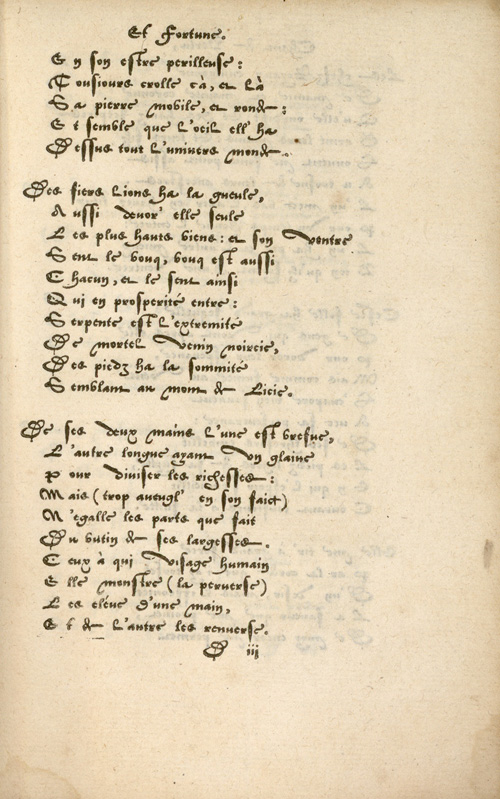 Et Fortune.
En son estre perilleuse:
Tousiours crolle cà, et là
Sa pierre mobile, et ronde:
Et semble que l'oeil ell' ha
Dessus tout l'univers monde.
Des fiers lions ha la gueule,
Aussi devor' elle seule
Les plus haults biens: et son ventre
Sent le bouq, bouq est aussi
Chacun, et le sent ainsi
Qui en prosperité entre:
Serpente est l'extremité
De mortel venin noircie,
Des piedz ha la sommité
Semblant au mont de Licie.
De ses deux mains l'une est brefue,
L'autre longue ayant un glaive
Pour diviser les richesses:
Mais (trop aveugl' en son faict)
N'egalle les parts que fait
Du butin de ses largesses.
Ceux à qui visage humain
Elle monstre (la perverse)
Les eléve d'une main,
Et de l'autre les renverse.
D iii